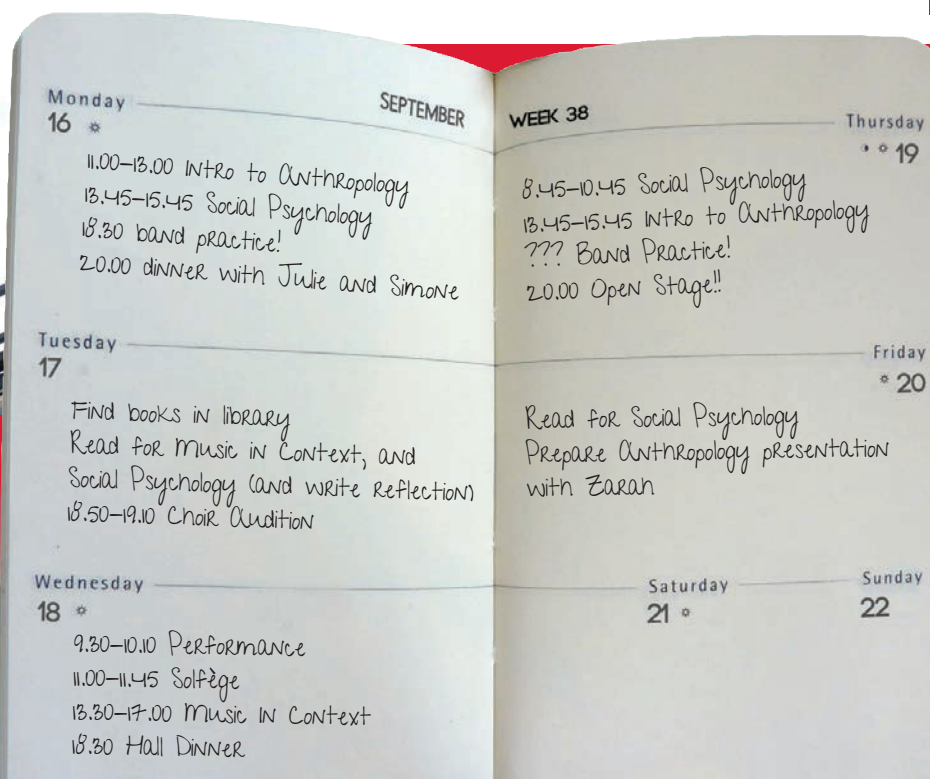 Monday
16
SEPTEMBER
11.00–13.00 Intro to Anthropology
13.45–15.45 Social Psychology
18.30 band practice!
20.00 dinner with Julie and Simone
Tuesday
17
Find books in library
Read for Music in Context, and
Social Psychology (and write reflection)
18.50–19.10 Choir Audition
Wednesday
18
9.30–10.10 Performance
11.00–11.45 Solfège
13.30–17.00 Music in Context
18.30 Hall Dinner
WEEK 38
Thursday
19
8.45–10.45 Social Psychology
13.45–15.45 Intro to Anthropology
??? Band Practice!
20.00 Open Stage!!
Friday
20
Read for Social Psychology
Prepare Anthropology presentation
with Zarah
Saturday
21
Sunday
22